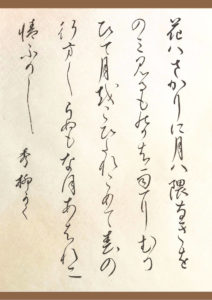 花ハさかりに月ハ隈なきを
のミ見るものかは雨にむか
ひて月をこひたれこめて春の
行方しらぬもなほあはれに
情ふかし
秀柳かく